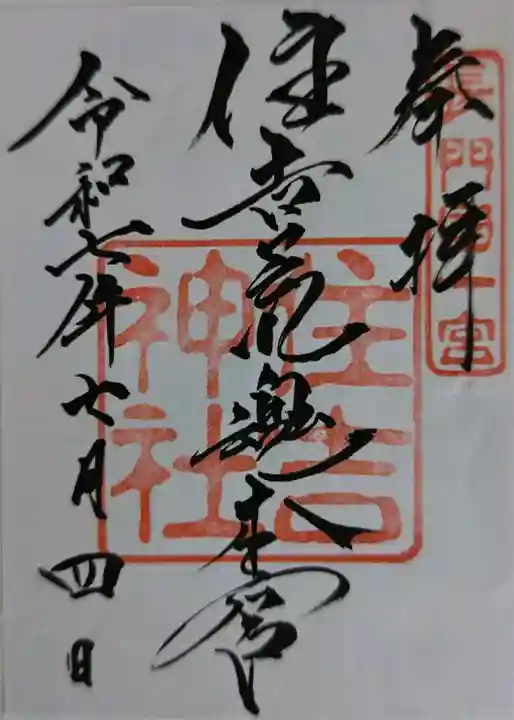 長門國一宮
奉拝
住吉荒魂本宮
住吉
神社
令和七年七月四日